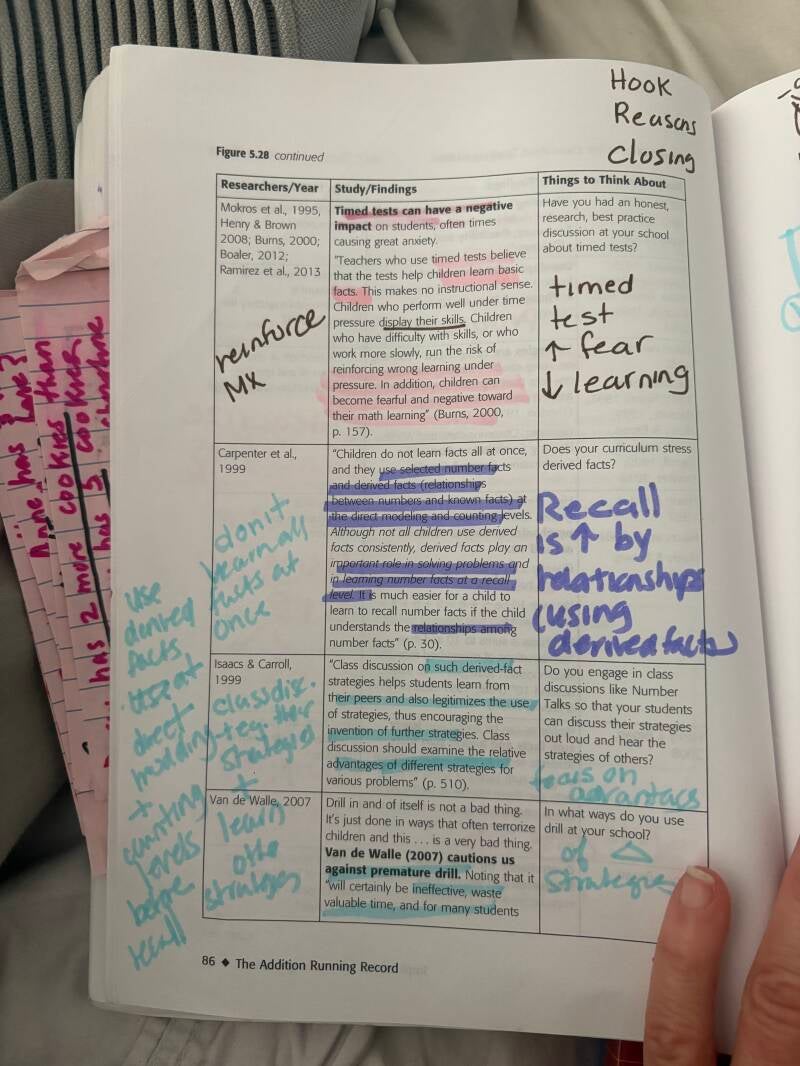 Hook
Reasons
Closing
Figure 5.28 continued
Researchers/Year
Study/Findings
Things to Think About
Mokros et al., 1995,
Henry & Brown
2008; Burns, 2000;
Boaler, 2012;
Ramirez et al., 2013
reinforce
Timed tests can have a negative
impact on students, often times
causing great anxiety.
"Teachers who use timed tests believe
that the tests help children learn basic
facts. This makes no instructional sense.
Children who perform well under time
pressure display their skills. Children
who have difficulty with skills, or who
work more slowly, run the risk of
reinforcing wrong learning under
pressure. In addition, children can
become fearful and negative toward
their math learning" (Burns, 2000,
p. 157).
Have you had an honest,
research, best practice
discussion at your school
about timed tests?
timed
test
↑ fear
↓ learning
Carpenter et al.,
1999
don't
learn all
facts at
once
"Children do not learn facts all at once,
and they use selected number facts
and derived facts (relationships
between numbers and known facts) at
the direct modeling and counting levels.
Although not all children use derived
facts consistently, derived facts play an
important role in solving problems and
in learning number facts at a recall
level. It is much easier for a child to
learn to recall number facts if the child
understands the relationships among
number facts" (p. 30).
Does your curriculum stress
derived facts?
Recall
is ↑ by
relationships
(using
derived facts)
use
derived
facts
use at
direct
modeling
+
counting
levels
before
recall
Isaacs & Carroll,
1999
class dis.
strategies
+
learn
other
strategies
"Class discussion on such derived-fact
strategies helps students learn from
their peers and also legitimizes the use
of strategies, thus encouraging the
invention of further strategies. Class
discussion should examine the relative
advantages of different strategies for
various problems" (p. 510).
Do you engage in class
discussions like Number
Talks so that your students
can discuss their strategies
out loud and hear the
strategies of others?
focus on
of
strategies
Van de Walle, 2007
Drill in and of itself is not a bad thing.
It's just done in ways that often terrorize
children and this . . . is a very bad thing.
Van de Walle (2007) cautions us
against premature drill. Noting that it
"will certainly be ineffective, waste
valuable time, and for many students
In what ways do you use
drill at your school?
86 ◆ The Addition Running Record
Anne has
cookies than
has 2 more cookies
has 5 cookies